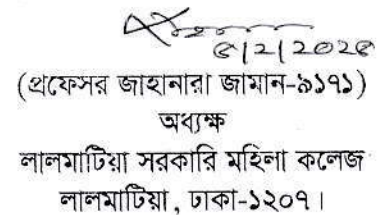 ৫/২/২০২৫
(প্রফেসর জাহানারা জামান-৯১৭১)
অধ্যক্ষ
লালমাটিয়া সরকারি মহিলা কলেজ
লালমাটিয়া, ঢাকা-১২০৭।